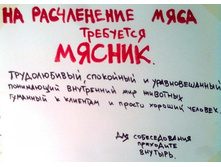 НА РАСЧЛЕНЕНИЕ МЯСА
ТРЕБУЕТСЯ
МЯСНИК.
ТРУДОЛЮБИВЫЙ, СПОКОЙНЫЙ И УРАВНОВЕШАННЫЙ
ПОНИМАЮЩИЙ ВНУТРЕННИЙ МИР ЖИВОТНЫХ
ГУМАННЫЙ К КЛИЕНТАМ И ПРОСТО ХОРОШИЙ ЧЕЛОВЕК.
ДЛЯ СОБЕСЕДОВАНИЯ
ПРИХОДИТЕ
ВНУТЫРЬ.